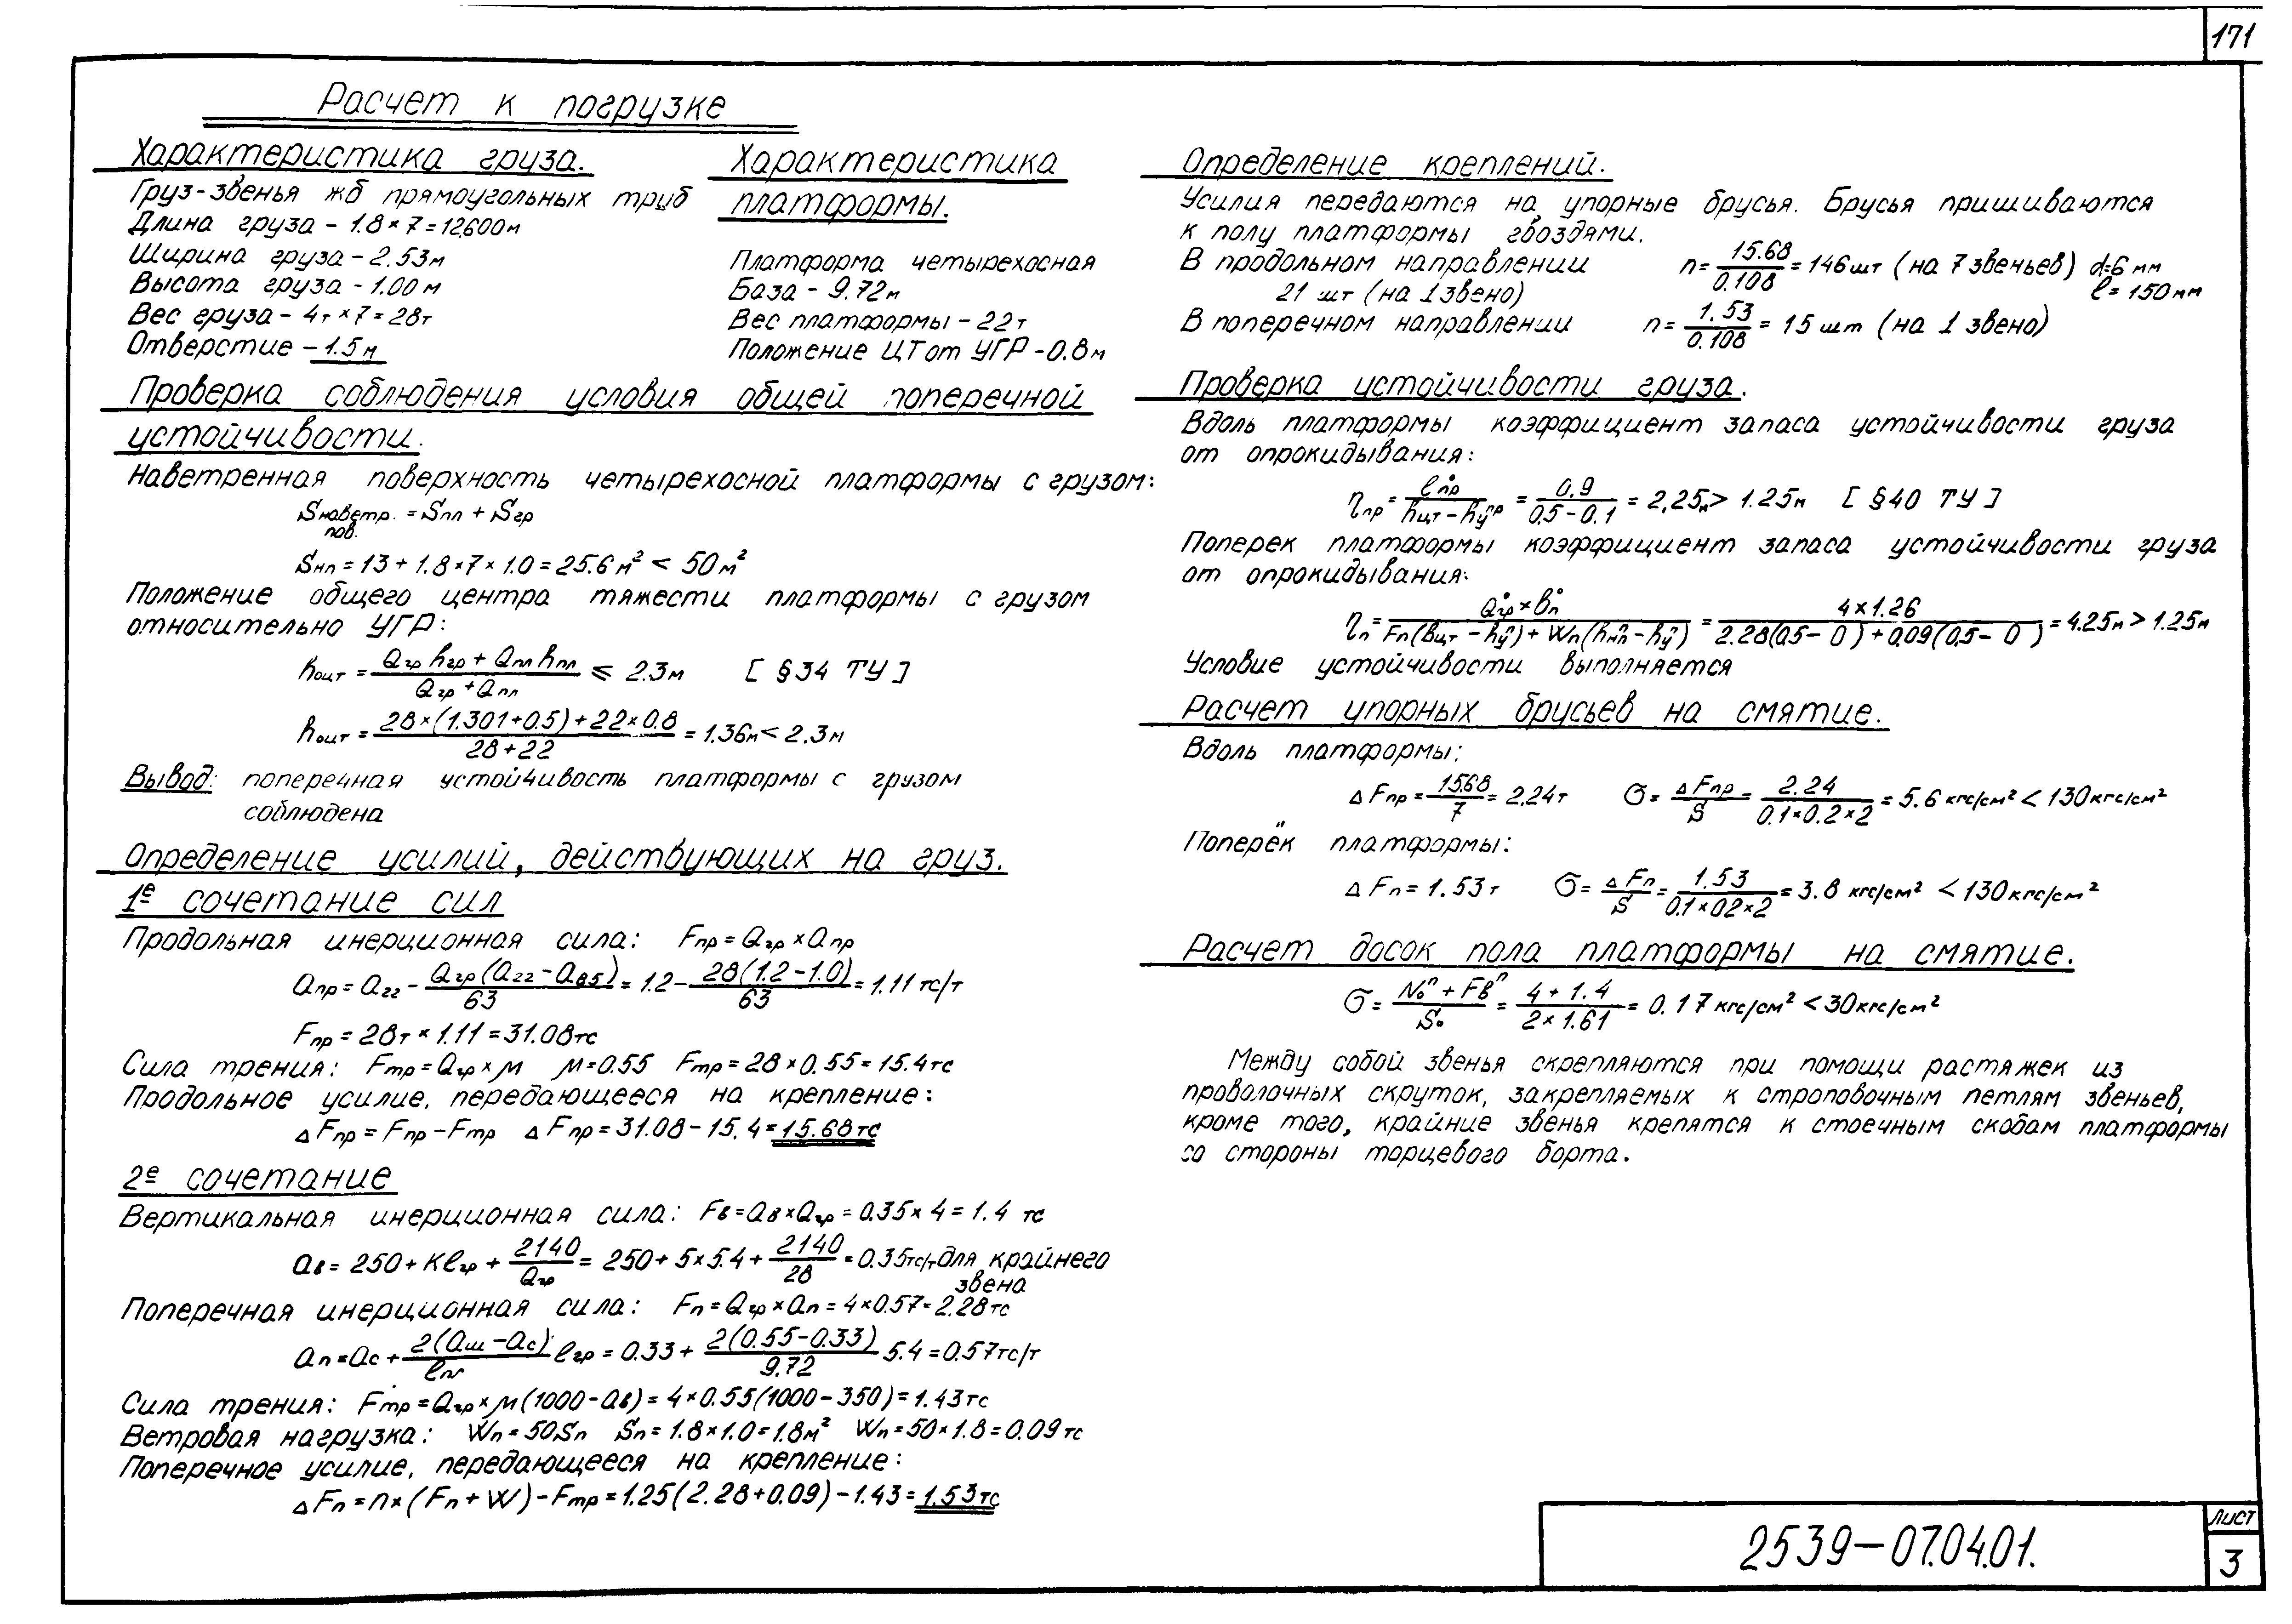 171
Расчет к погрузке
Характеристика груза.
Груз-звенья жб прямоугольных труб
Длина груза - 1.8×7=12,600м
Ширина груза - 2.53м
Высота груза - 1.00 м
Вес груза - 4т×7=28т
Отверстие - 1.5м
Характеристика
платформы.
Платформа четырехосная
База - 9.72м
Вес платформы - 22т
Положение ЦТ от УГР - 0.8м
Проверка соблюдения условия общей поперечной
устойчивости.
Наветренная поверхность четырехосной платформы с грузом:
Sнаветр. пов. = Sпл + Sгр
Sнп = 13 + 1.8×7×1.0 = 25.6 м² < 50 м²
Положение общего центра тяжести платформы с грузом
относительно УГР:
hоцт = (Qгр hгр + Qпл hпл) / (Qгр + Qпл) ⩽ 2.3м [ §34 ТУ ]
hоцт = (28×(1.301+0.5)+22×0.8) / (28+22) = 1.36м < 2.3м
Вывод: поперечная устойчивость платформы с грузом
соблюдена
Определение усилий, действующих на груз.
1е сочетание сил
Продольная инерционная сила: Fпр = Qгр × aпр
aпр = a22 - Qгр(a22 - a85) / 63 = 1.2 - 28(1.2-1.0) / 63 = 1.11 тс/т
Fпр = 28т × 1.11 = 31.08тс
Сила трения: Fтр = Qгр × м м=0.55 Fтр = 28×0.55 = 15.4тс
Продольное усилие, передающееся на крепление:
Δ Fпр = Fпр - Fтр Δ Fпр = 31.08 - 15.4 = 15.68 тс
2е сочетание
Вертикальная инерционная сила: Fв = aв × Qгр = 0.35×4 = 1.4 тс
aв = 250 + Kℓгр + 2140 / Qгр = 250 + 5×5.4 + 2140 / 28 = 0.35тс/т для крайнего
звена
Поперечная инерционная сила: Fп = Qгр × aп = 4×0.57 = 2.28тс
aп = aс + 2(aш - aс) / ℓпл ℓгр = 0.33 + 2(0.55-0.33) / 9.72 5.4 = 0.57тс/т
Сила трения: Fтр = Qгр × м(1000 - aв) = 4×0.55(1000 - 350) = 1.43тс
Ветровая нагрузка: Wп = 50Sп Sп = 1.8×1.0 = 1.8м² Wп = 50×1.8 = 0.09 тс
Поперечное усилие, передающееся на крепление:
Δ Fп = n×(Fп + W) - Fтр = 1.25(2.28+0.09) - 1.43 = 1.53тс
Определение креплений.
Усилия передаются на упорные брусья. Брусья пришиваются
к полу платформы гвоздями.
В продольном направлении n = 15.68 / 0.108 = 146 шт (на 7 звеньев) d=6 мм
21 шт (на 1 звено) ℓ=150 мм
В поперечном направлении n = 1.53 / 0.108 = 15 шт (на 1 звено)
Проверка устойчивости груза.
Вдоль платформы коэффициент запаса устойчивости груза
от опрокидывания:
ηпр = ℓ°пр / (hцт - hупр) = 0.9 / (0.5 - 0.1) = 2,25м > 1.25м [ §40 ТУ ]
Поперек платформы коэффициент запаса устойчивости груза
от опрокидывания:
ηп = Q°гр × в°п / (Fп(вцт - hуп) + Wп(hнпп - hуп)) = 4×1.26 / (2.28(0.5 - 0) + 0.09(0.5 - 0)) = 4.25м > 1.25м
Условие устойчивости выполняется
Расчет упорных брусьев на смятие.
Вдоль платформы:
Δ Fпр = 15.68 / 7 = 2.24т σ = Δ Fпр / S = 2.24 / (0.1×0.2×2) = 5.6 кгс/см² < 130кгс/см²
Поперёк платформы:
Δ Fп = 1.53т σ = Δ Fп / S = 1.53 / (0.1×02×2) = 3.8 кгс/см² < 130кгс/см²
Расчет досок пола платформы на смятие.
σ = (Nоп + Fвп) / Sо = (4 + 1.4) / (2×1.61) = 0.17 кгс/см² < 30кгс/см²
Между собой звенья скрепляются при помощи растяжек из
проволочных скруток, закрепляемых к строповочным петлям звеньев,
кроме того, крайние звенья крепятся к стоечным скобам платформы
со стороны торцевого борта.
2539-07.04.01.
Лист
3